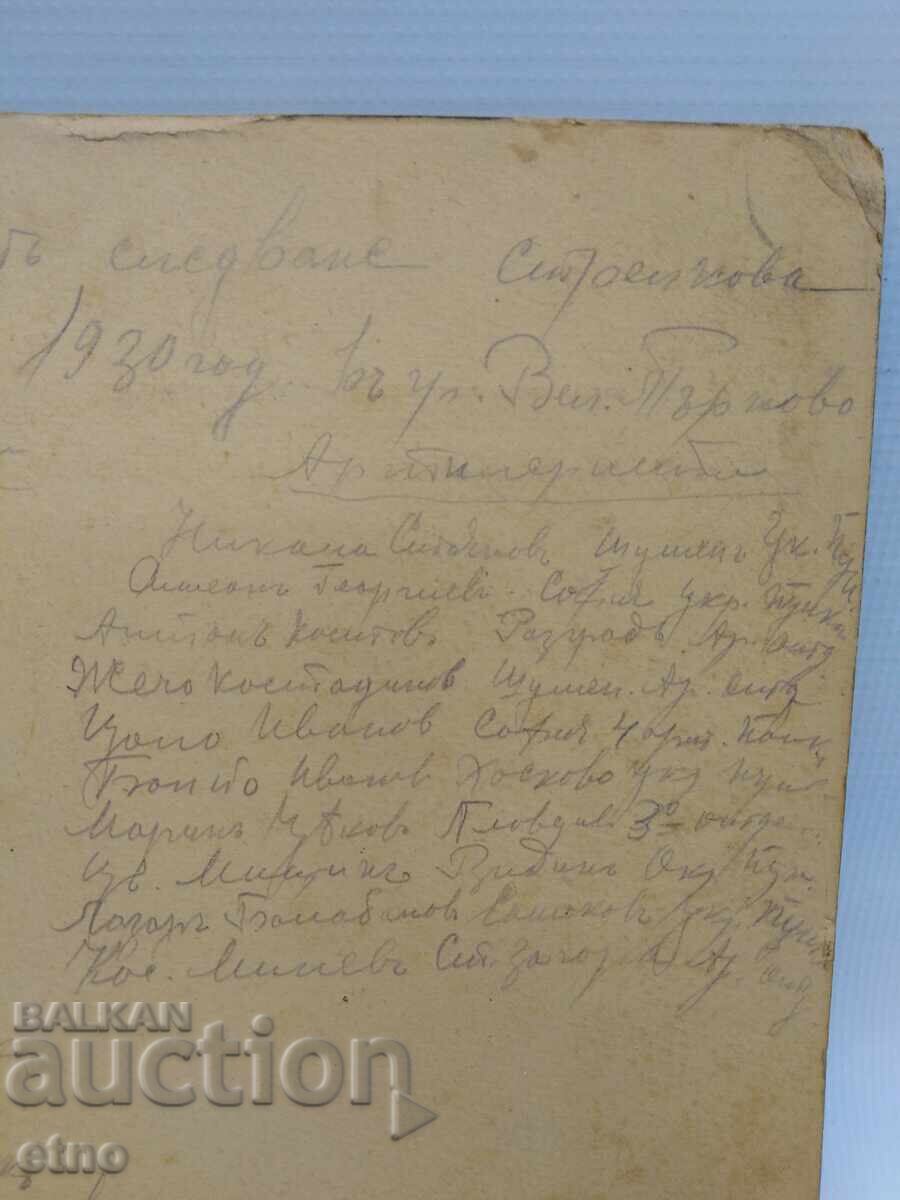 следване Стрелкова
1930 год. въ гр. Вел. Търново
Артилеристи
Никола Стояновъ Шуменъ Ук. Пун.
Симеонъ Георгиевъ София укр. Пункт
Антонъ Костовъ Разградъ Ар. отд
Жечо Костадинов Шумен. Ар. отд
Цоло Иванов София 4 арт. Полк
Иванов Хасково укр пунк
Маринъ Цѣковъ Пловдив 3º отде
Цв. Видинъ Окр. Пун.
Лазаръ Балабанов Самоковъ укр. Пункт
Кос. Милевъ Ст. Загора Ар. отд
BALKAN
auction
etno